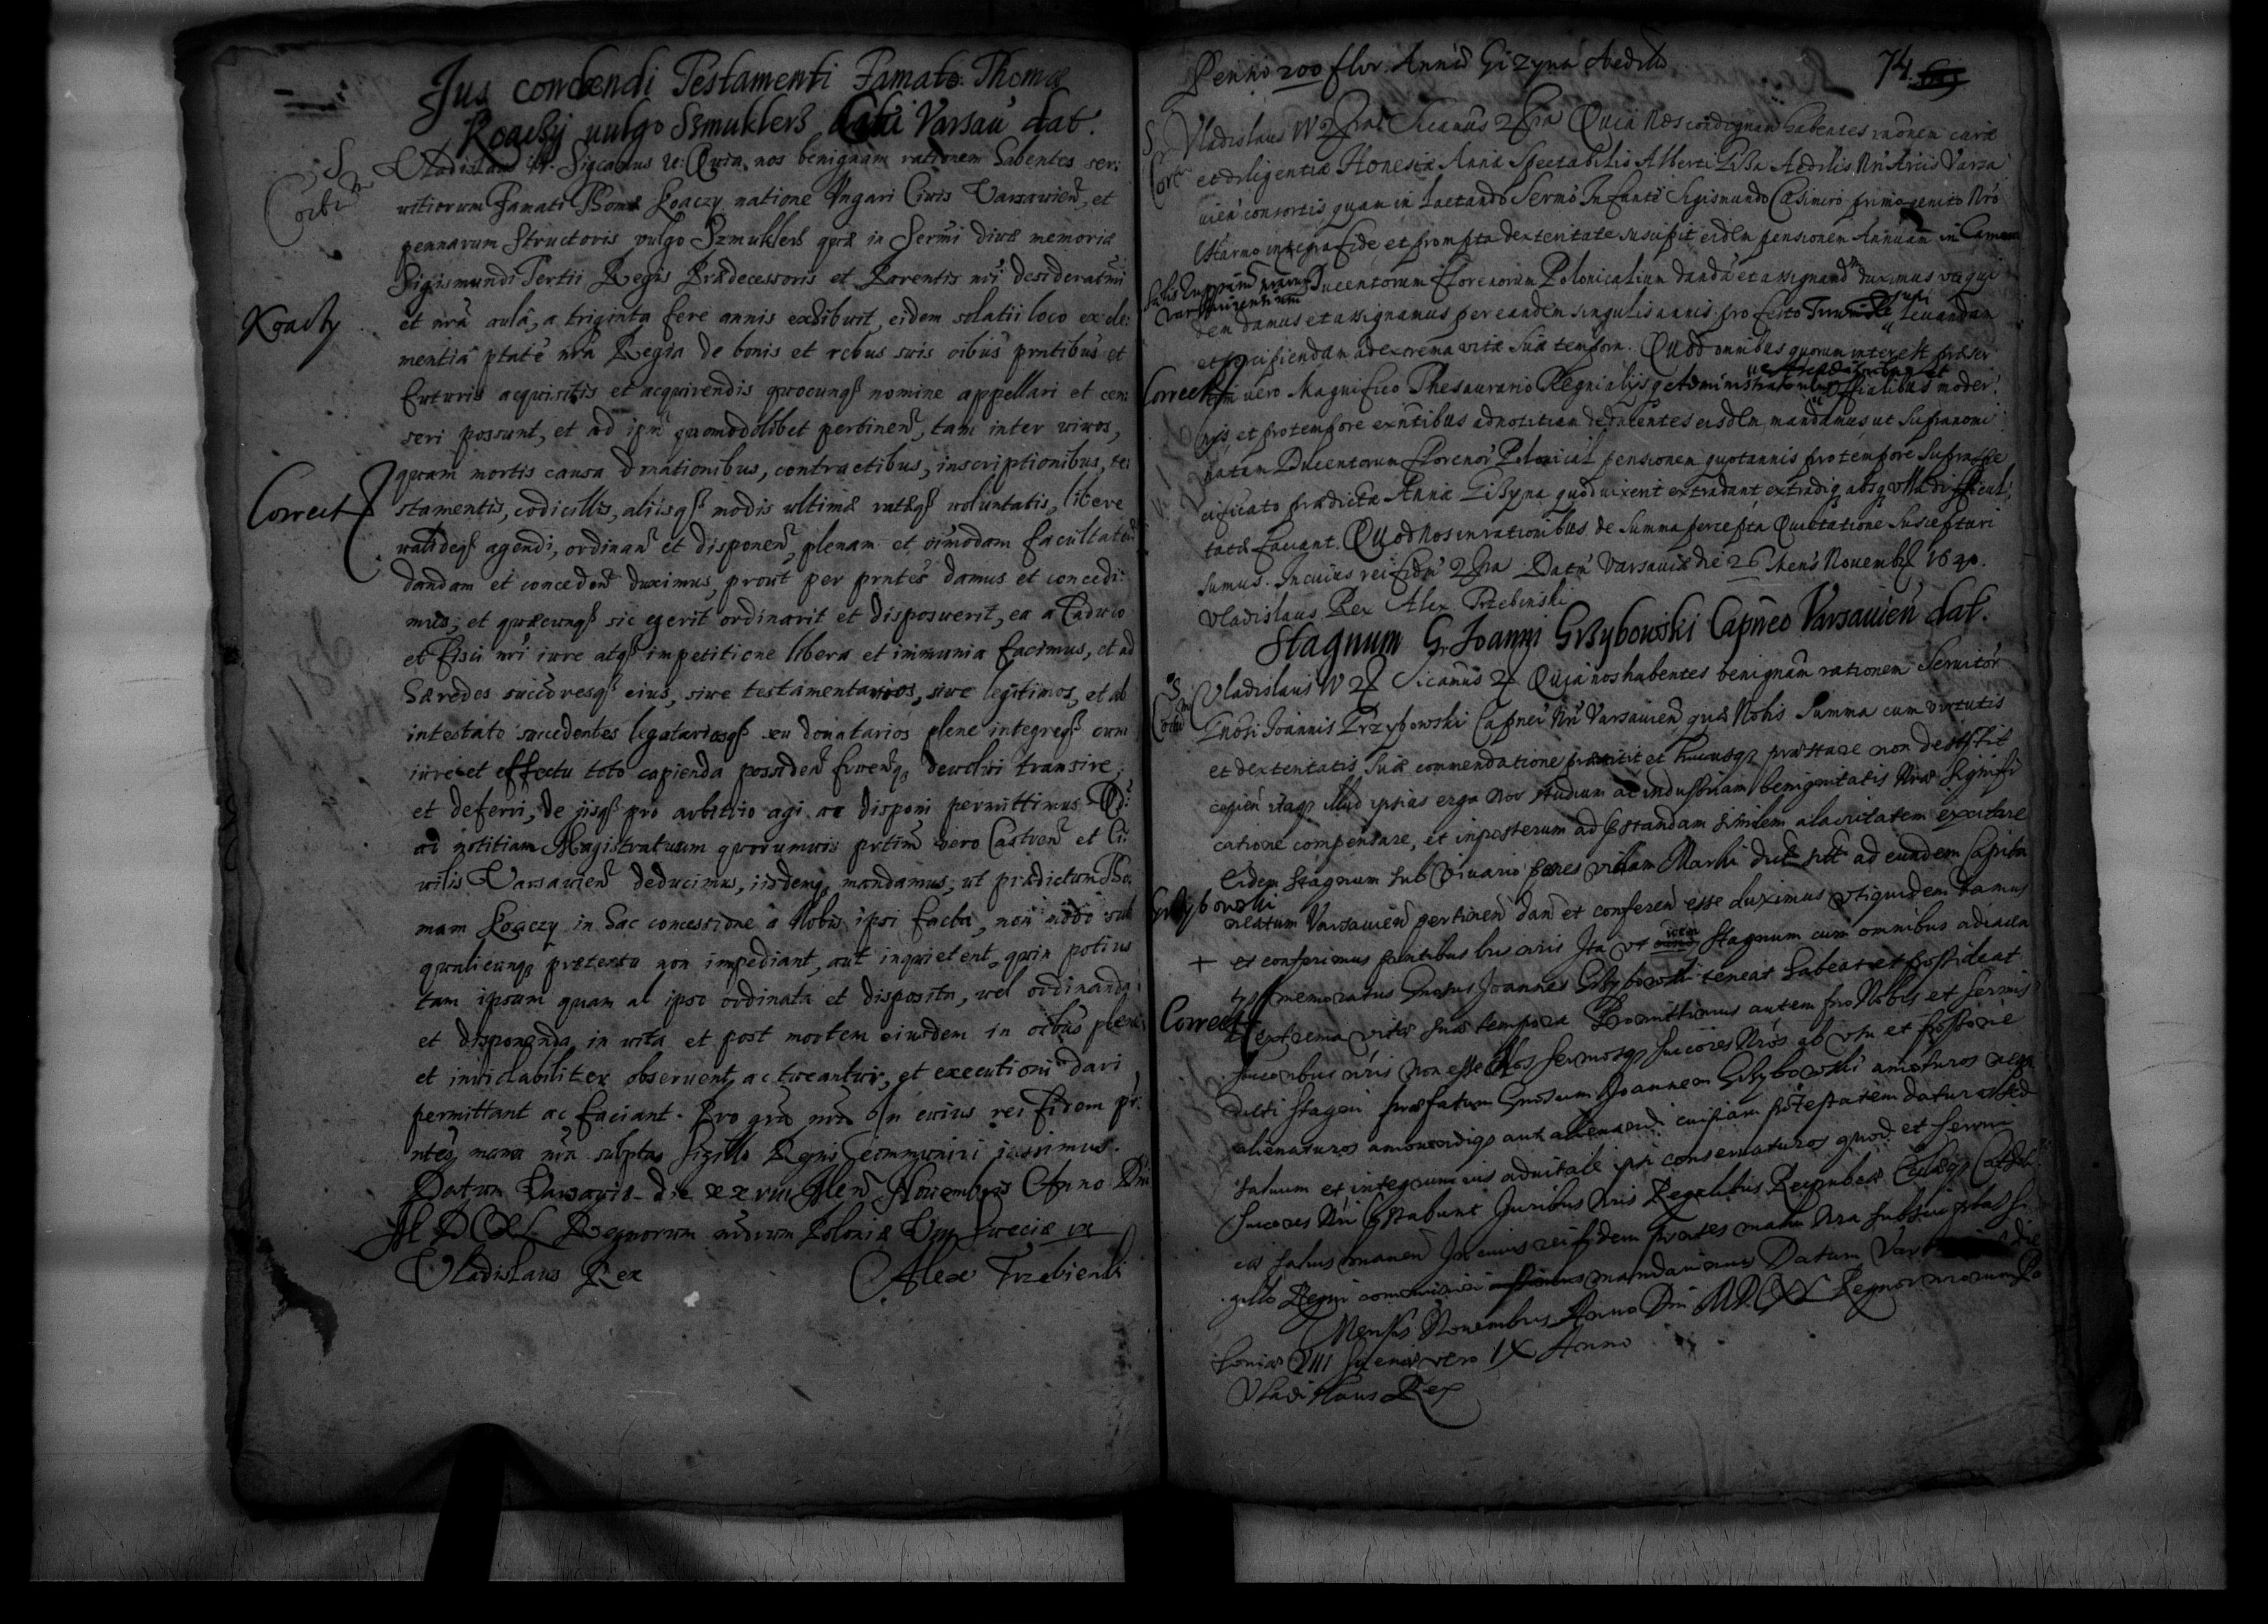 Jus condendi Testamenti Famato Thomæ
Koaczy vulgo Szmuklerz Varsau dat.
S
Vladislaus IV. Sigcamus &: Quia nos benignam rationem habentes ser:
vitiorum Famati Thomæ Koaczy natione Ungari Civis Varsavien, et
pennarum structoris vulgo Szmuklerz quæ in Sermi divæ memoriæ
Sigismundi Tertii Regis Prædecessoris et Parentis nri desideratmi
Koaczy
et nra aula, a triginta fere annis exhibuit, eidem solatii loco ex cle:
mentia ptate nra Regia de bonis et rebus suis oibus pntibus et
futuris acquisitis et acquirendis quocunq nomine appellari et cen:
seri possunt, et ad ipm quomodolibet pertinen, tam inter vivos,
quam mortis causa donationibus, contractibus, inscriptionibus, te:
Correct
stamentis, codicillis, aliisq modis ultimæ ratæq voluntatis, libere
valideq agendi, ordinan et disponen, plenam et oimodam facultatem
dandam et conceden duximus, prout per pntes damus et concedi:
mus; et quæcunq sic egerit ordinarit et disposuerit, ea a Caduco
et fisci nri iure atq impetitione libera et immunia facimus, et ad
hæredes succoresq eius, sive testamentarios, sive legitimos, et ab
intestato succedentes legatariosq seu donatarios plene integreq cum
iure et effectu toto capienda possiden fruenq devolvi transire,
et deferri, de iisq pro arbitrio agi ac disponi permittimus Qd:
ad notitiam Magistratuum quorumvis prtim vero Castren et Ci:
vilis Varsavien deducimus, iisdemq mandamus, ut prædictum Tho:
mam Koaczy in hac concessione a Nobis ipsi facta, non modo sub
qualicunq prætextu non impediant, aut inquietent, quin potius
tam ipsum quam ab ipso ordinata et disposita, vel ordinanda
et disponenda in vita et post mortem eiusdem in oibus plene
et inviolabiliter observent, ac tueantur, et executioni dari
permittant ac faciant. Pro gra nra In cuius rei fidem pr:
ntes manu nra subptas sigillo Regni communiri iussimus.
Datum Varsaviæ die xxviii Men Novembris Anno Dni
MDCXL Regnorum nrorum Poloniæ Sveciæ
Vladislaus Rex Alex Trzebienski
Penno 200 flor. Annæ Gizyna Aedilis
74
S
Vladislaus IV Sicamus Quia Nos condignam habentes raonem curæ
et diligentiæ Honestæ Annæ Spectabilis Alberti Giza Aedilis Nri Arcis Varsa
vien consortis quam in lactando Sermo Infante Sigismundo Casimiro primogenito Nro
integra fide et prompta dexteritate suscipit eidem pensionem Annuam in
Ducentorum florenorum Polonicalium dandam et assignand duximus uti qui
dem damus et assignamus per eandem singulis annis pro festo levandam
et percipiendam ad extrema vitæ suæ tempora. Quod omnibus quorum interest præser
Correct
tim vero Magnifico Thesaurario Regni aliisq Administratoribus Officialibus moder
nis et pro tempore exntibus ad notitiam deducentes eisdem mandamus ut supranomi
natam Ducentorum florenor Polonical pensionem quotannis pro tempore supraspe
cificato prædictæ Annæ Gizyna quoad vixerit extradant extradiq absq ulla difficul
tate faciant. Quod nos in rationibus de summa percepta Quietatione suscepturi
sumus. In cuius rei fidem Datu Varsaviæ die 26 Mens Novembr 1640.
Vladislaus Rex Alex Trzebinski
Stagnum G. Joanni Grzybowski Capneo Varsavien dat.
Vladislaus IV Sicamus Quia nos habentes benignam rationem Servitor
Gnosi Joannis Grzybowski Capnei Nri Varsavien quæ Nobis Summa cum virtutis
et dexteritatis suæ commendatione præstitit et hucusq præstare non desistit
cupien itaq illud ipsius erga nos studium ac industriam benignitatis Nræ signifi
catione compensare, et inposterum ad præstandam similem alacritatem excitare
Eidem Stagnum sub Vivario penes villam Marki dict sit ad eundem Capita
Grzybowski
neatum Varsavien pertinen dan et conferen esse duximus utiquidem damus
+ et conferimus pntibus lris nris Ita ut idem Stagnum cum omnibus adiacen
memoratus Gnosus Joannes Grzybowski teneat habeat et possideat
Correct
ad extrema vitæ suæ tempora Promittimus autem pro Nobis et sermis
succoribus nris non esse Nos sermosq succores Nros ab usu et possone
dicti Stagni præfatum Gnosum Joannem Grzybowski amoturos neq
alienaturos amovendiq aut alienandi cuipiam potestatem daturos sed
salvum et integrum ius advitale ipsi conservaturos quod et sermi
succores Nri præstabunt Juribus Nris Regalibus Reipublicæ
salvis manen In cuius rei fidem præsentes manu Nra subscriptas si
gillo Regni communiri mandavimus Datum Varsaviæ die
Mensis Novembris Anno Dni MDCXL Regnor nrorum Po
loniæ VIII Sueciæ vero IX Anno
Vladislaus Rex